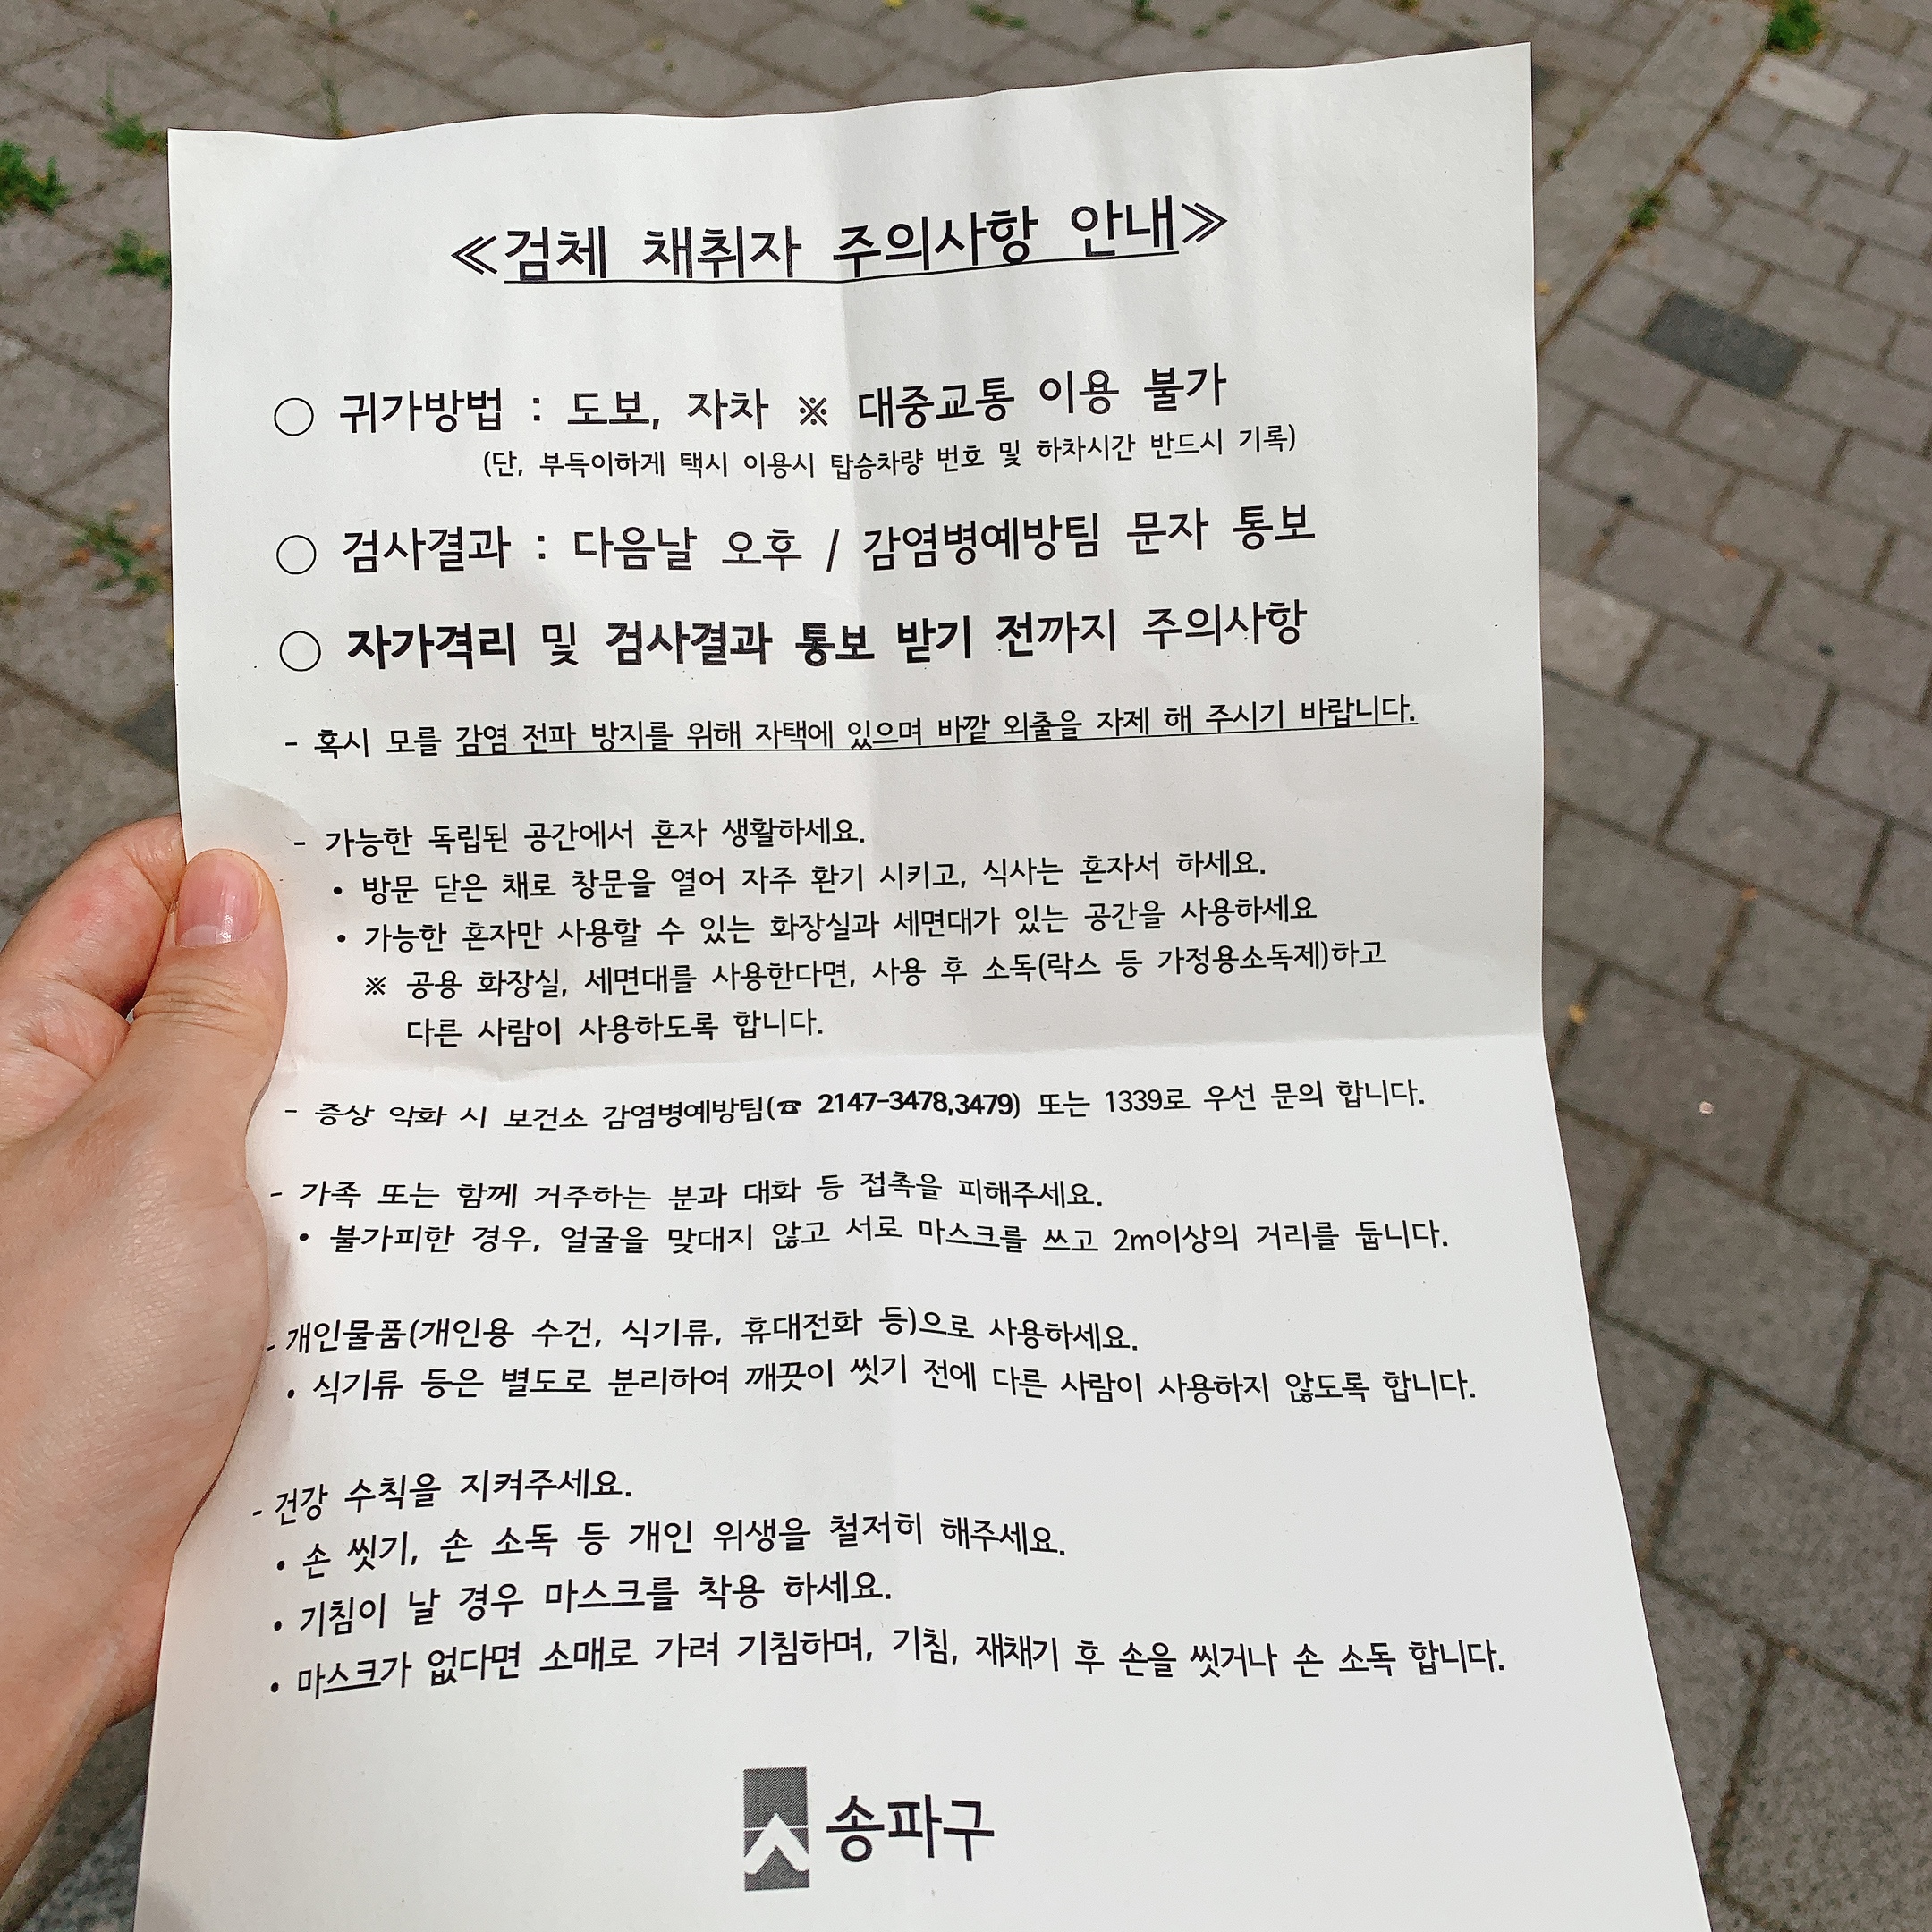 ≪검체 채취자 주의사항 안내≫
○ 귀가방법 : 도보, 자차 ※ 대중교통 이용 불가
(단, 부득이하게 택시 이용시 탑승차량 번호 및 하차시간 반드시 기록)
○ 검사결과 : 다음날 오후 / 감염병예방팀 문자 통보
○ 자가격리 및 검사결과 통보 받기 전까지 주의사항
- 혹시 모를 감염 전파 방지를 위해 자택에 있으며 바깥 외출을 자제 해 주시기 바랍니다.
- 가능한 독립된 공간에서 혼자 생활하세요.
• 방문 닫은 채로 창문을 열어 자주 환기 시키고, 식사는 혼자서 하세요.
• 가능한 혼자만 사용할 수 있는 화장실과 세면대가 있는 공간을 사용하세요
※ 공용 화장실, 세면대를 사용한다면, 사용 후 소독(락스 등 가정용소독제)하고
다른 사람이 사용하도록 합니다.
- 증상 악화 시 보건소 감염병예방팀(☎ 2147-3478,3479) 또는 1339로 우선 문의 합니다.
- 가족 또는 함께 거주하는 분과 대화 등 접촉을 피해주세요.
• 불가피한 경우, 얼굴을 맞대지 않고 서로 마스크를 쓰고 2m이상의 거리를 둡니다.
- 개인물품(개인용 수건, 식기류, 휴대전화 등)으로 사용하세요.
• 식기류 등은 별도로 분리하여 깨끗이 씻기 전에 다른 사람이 사용하지 않도록 합니다.
- 건강 수칙을 지켜주세요.
• 손 씻기, 손 소독 등 개인 위생을 철저히 해주세요.
• 기침이 날 경우 마스크를 착용 하세요.
• 마스크가 없다면 소매로 가려 기침하며, 기침, 재채기 후 손을 씻거나 손 소독 합니다.
송파구